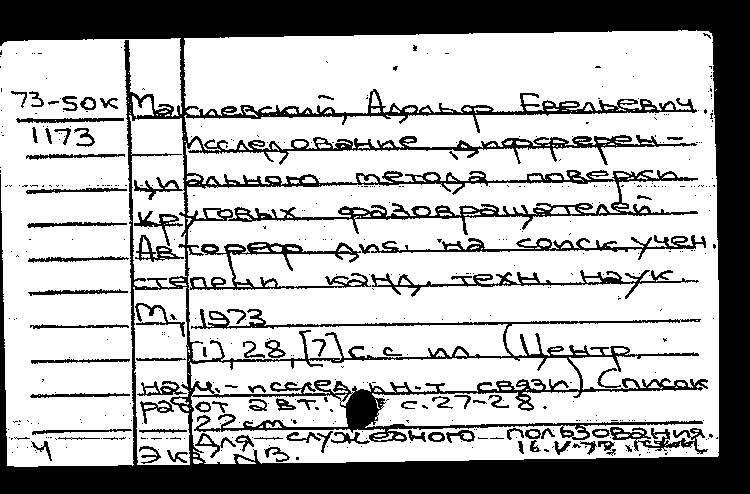 73-50к Маклевский, Адольф Евельевич.
1173 Исследование дифферен-
циального метода поверки
круговых фазовращателей.
Автореф дис. на соиск. учен.
степени канд. техн. наук.
М., 1973
[1], 28, [7] с. с ил. (Центр.
науч.-исслед. ин-т связи). Список
работ авт.: с. 27-28.
22 см.
Для служебного пользования.
Ч Экз. N3.